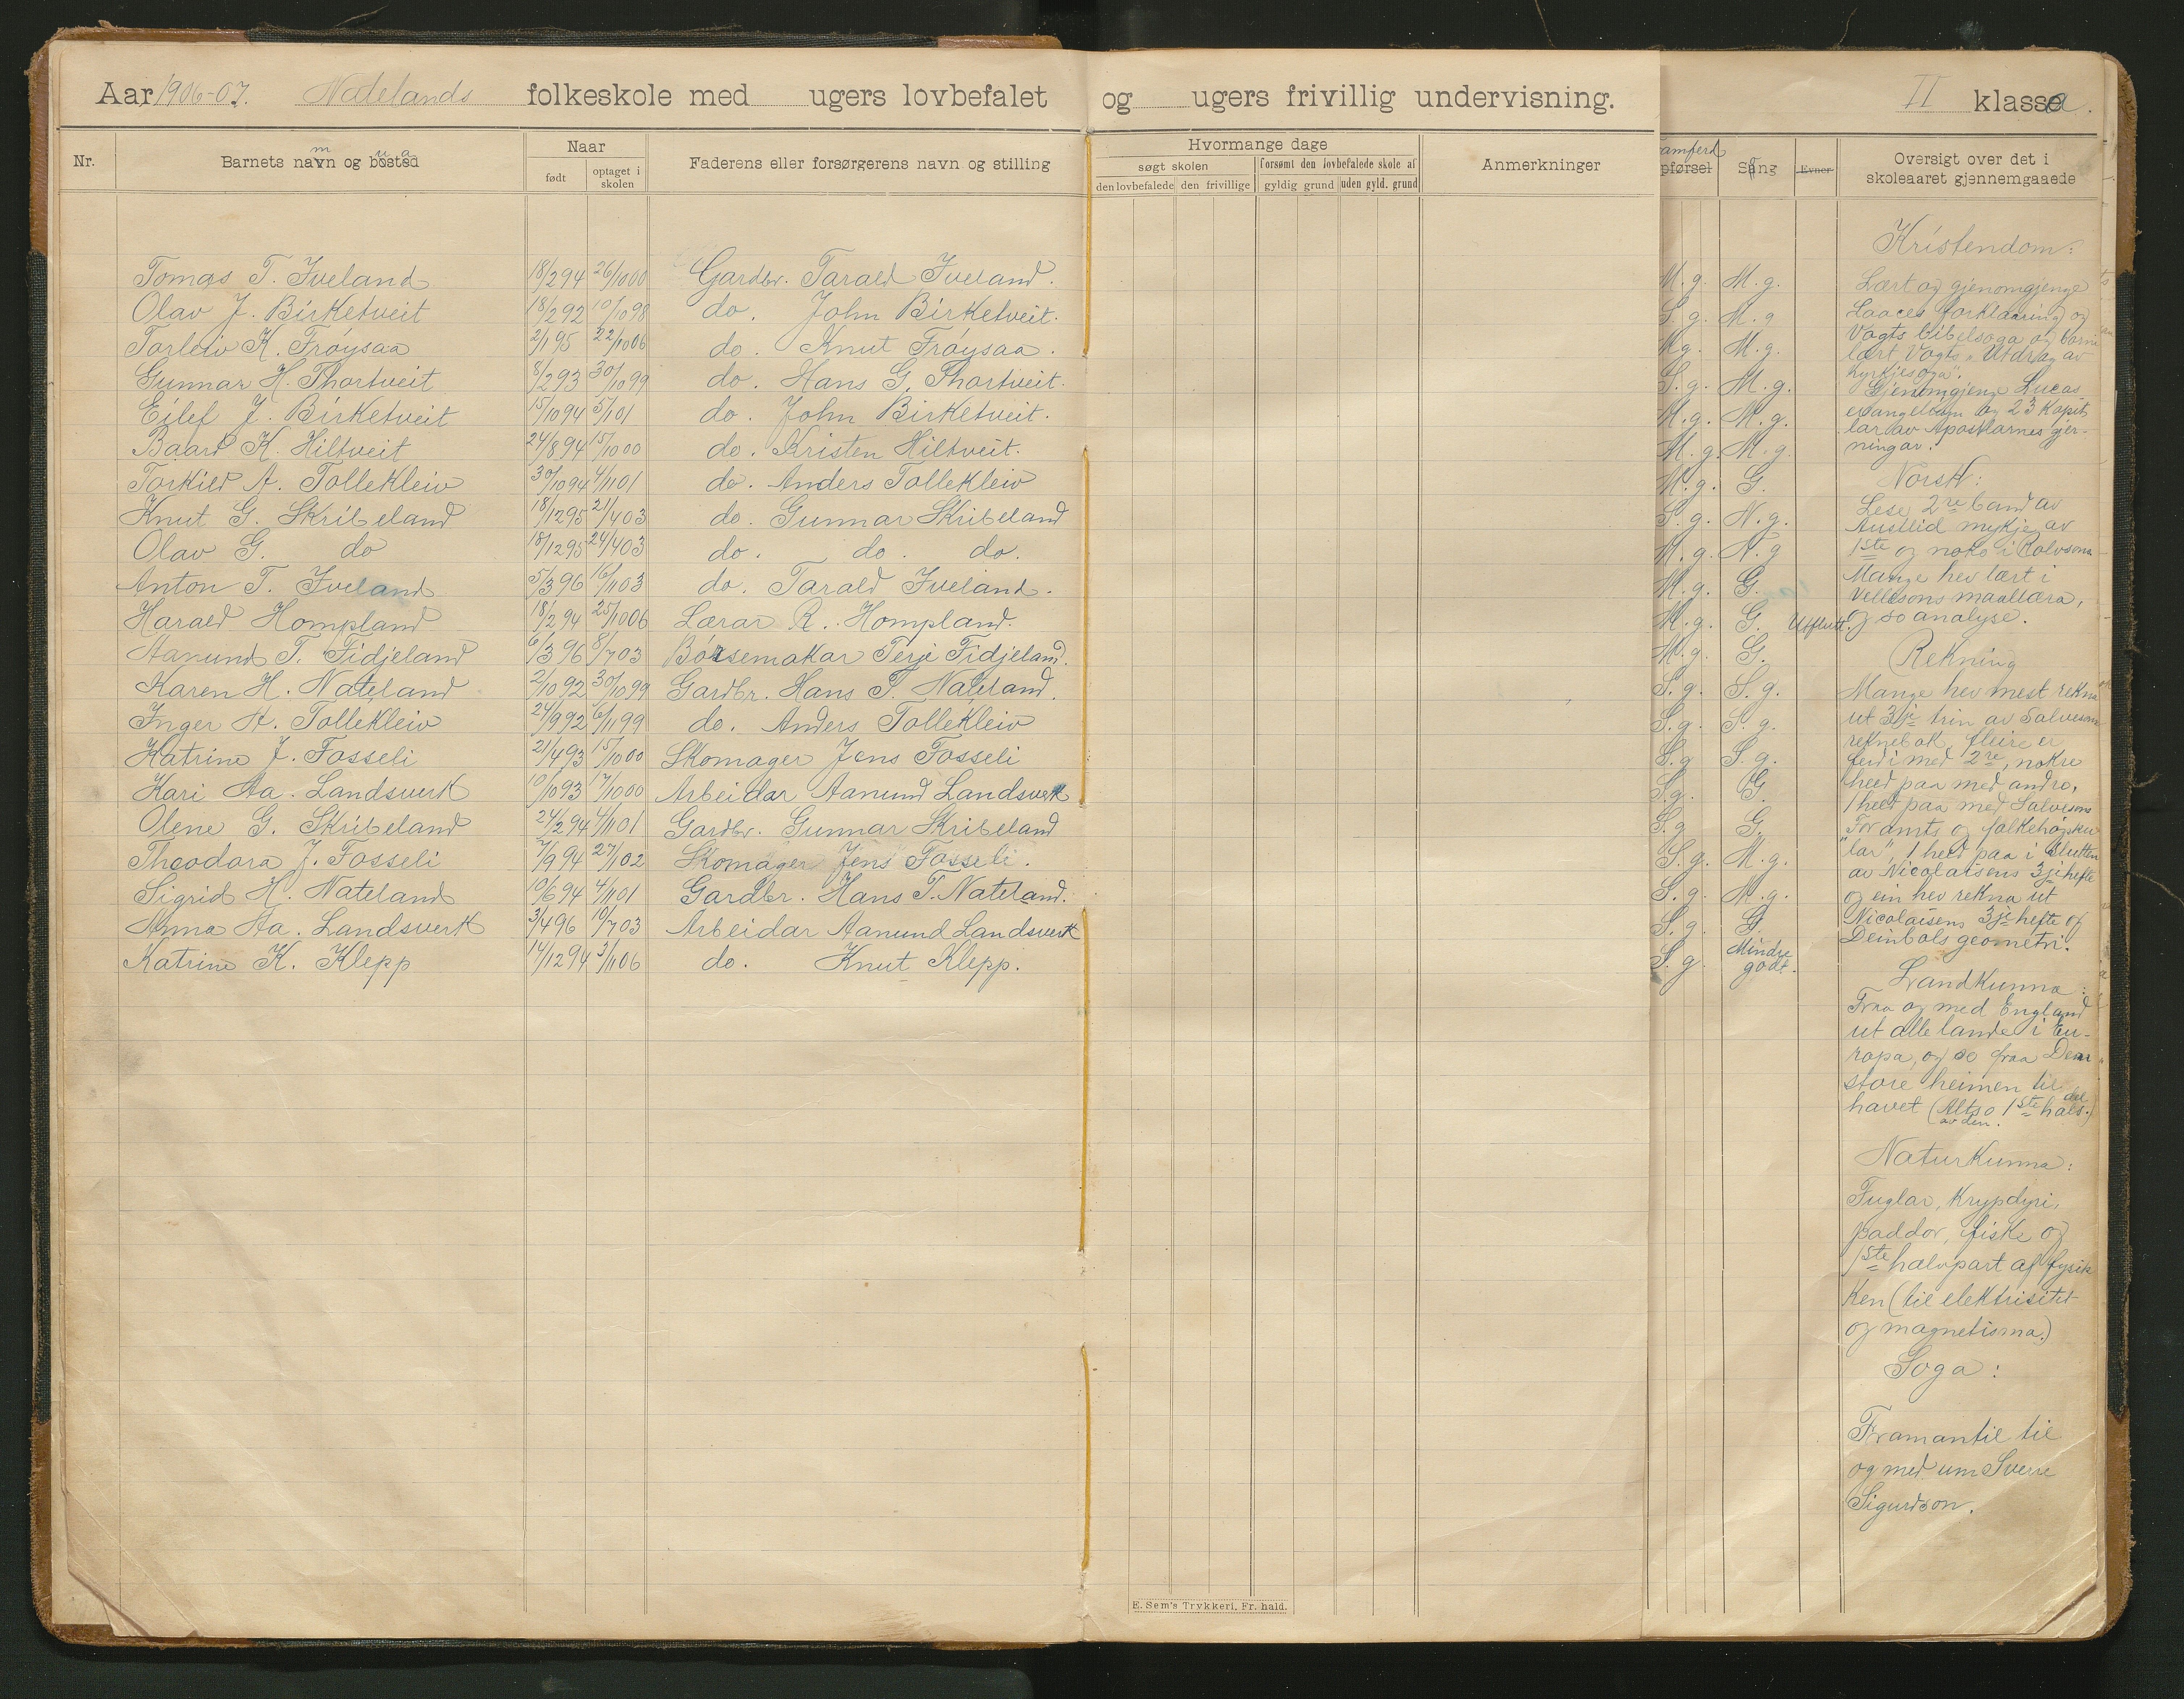 Aar 1906-07. Natelands folkeskole med ugers lovbefalet og ugers frivillig undervisning. II klassa.
Nr. Barnets namn og bustad Naar født optaget i skolen Faderens eller forsørgerens navn og stilling
Hvormange dage
søgt skolen forsømt den lovbefalede skole af
den lovbefalede den frivillige gyldig grund uden gyld. grund
Anmerkninger
amferd
pførsel Sang Evner Oversigt over det i skoleaaret gjennemgaaede
Tomas T. Iveland 18/2 94 26/10 00 Gardbr. Tarald Iveland. M.g. M.g.
Olav J. Birketveit 18/2 92 10/10 98 do. John Birketveit. S.g. M.g
Torleiv K. Frøysaa 2/1 95 22/10 06 do. Knut Frøysaa. M.g. M.g.
Gunnar H. Thortveit 8/2 93 30/10 99 do. Hans G. Thortveit. S.g. M.g.
Eilef J. Birketveit 15/10 94 5/1 01 do. John Birketveit. M.g. M.g.
Baard K. Hiltveit 24/8 94 15/10 00 do. Kristen Hiltveit. M.g. M.g.
Torkild A. Tollekleiv 30/10 94 4/11 01 do. Anders Tollekleiv M.g. G.
Knut G. Skribeland 18/12 95 21/4 03 do. Gunnar Skribeland S.g. N.g.
Olav G. do 18/12 95 24/4 03 do. do. do. M.g. N.g
Anton T. Iveland 5/3 96 16/11 03 do. Tarald Iveland. M.g. G.
Harald Hompland 18/2 94 25/10 06 Lærar R. Hompland. M.g. G. Utflutt.
Aanund T. Fidjeland 6/3 96 8/7 03 Børsemakar Terje Fidjeland. M.g. G.
Karen H. Nateland 2/10 92 30/10 99 Gardbr. Hans T. Nateland. S.g. S.g.
Inger A. Tollekleiv 24/9 92 6/11 99 do. Anders Tollekleiv S.g. S.g.
Katrine J. Fosseli 21/4 93 15/10 00 Skomager Jens Fosseli S.g S.g.
Kari Aa. Landsverk 10/10 93 17/10 00 Arbeidar Aanund Landsverk S.g. G.
Olene G. Skribeland 24/2 94 4/11 01 Gardbr. Gunnar Skribeland S.g G.
Theodora J. Fosseli 7/9 94 27/1 02 Skomager Jens Fosseli. S.g. M.g.
Sigrid H. Nateland 10/6 94 4/11 01 Gardbr. Hans T. Nateland. S.g. M.g.
Anna Aa. Landsverk 3/4 96 10/7 03 Arbeidar Aanund Landsverk S.g. G.
Katrine K. Klepp 14/12 94 3/11 06 do. Knut Klepp. S.g Mindre godt.
Kristendom:
Lært og gjenomgjenge
Laaces forklaaring og
Vogts bibelsoga og
lært Vogts "Utdrag av
kyrkjesoga".
Gjenomgjenge Lucas
evangelium og 23 kapit
lar av Apostlarnes gjer-
ningar.
Norsk:
Lese 2re band av
Austlid mykje av
1ste og noko i Rolvsons
Mange hev lært i
Vellesons maallæra,
og so analyse.
Rekning
Mange hev mest rekna
ut 3je trin av Salvesons
reknebok, fleire er
ferdi med 2re, nokre
held paa med andre,
1 held paa med Salvesons
"For amts og folkehøgsku
lar", 1 held paa i slutten
av Nicolaisens 3je hefte
og ein hev rekna ut
Nicolaisens 3je hefte og
Deinbols geometri.
Landkunna:
Fraa og med England
ut alle lande i Eu-
ropa, og so fraa Den
store heimen til
havet (Altso 1ste hals. del
av den.)
Naturkunna:
Fuglar, krypdyri,
paddor, fiske og
1ste halvpart af fysik
ken (til elektrisitet
og magnetisma.)
Soga:
Framantil til
og med um Sverre
Sigurdson.
E. Sem's Trykkeri, Fr. hald.